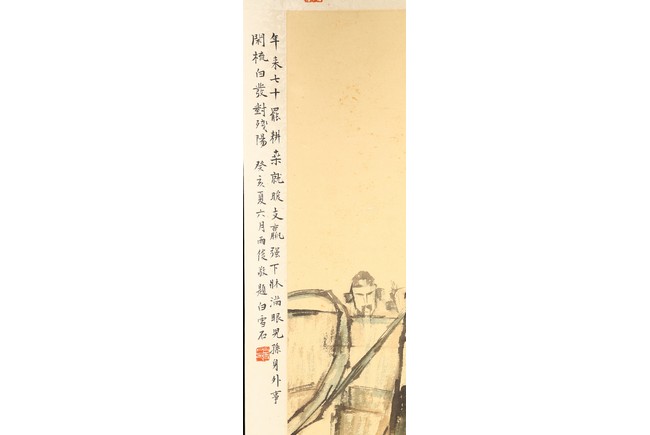 年来七十罷耕桒就暖支羸强下牀滿眼兒孫身外事
閑梳白髮對殘陽 癸亥夏六月雨後敬題白雪石